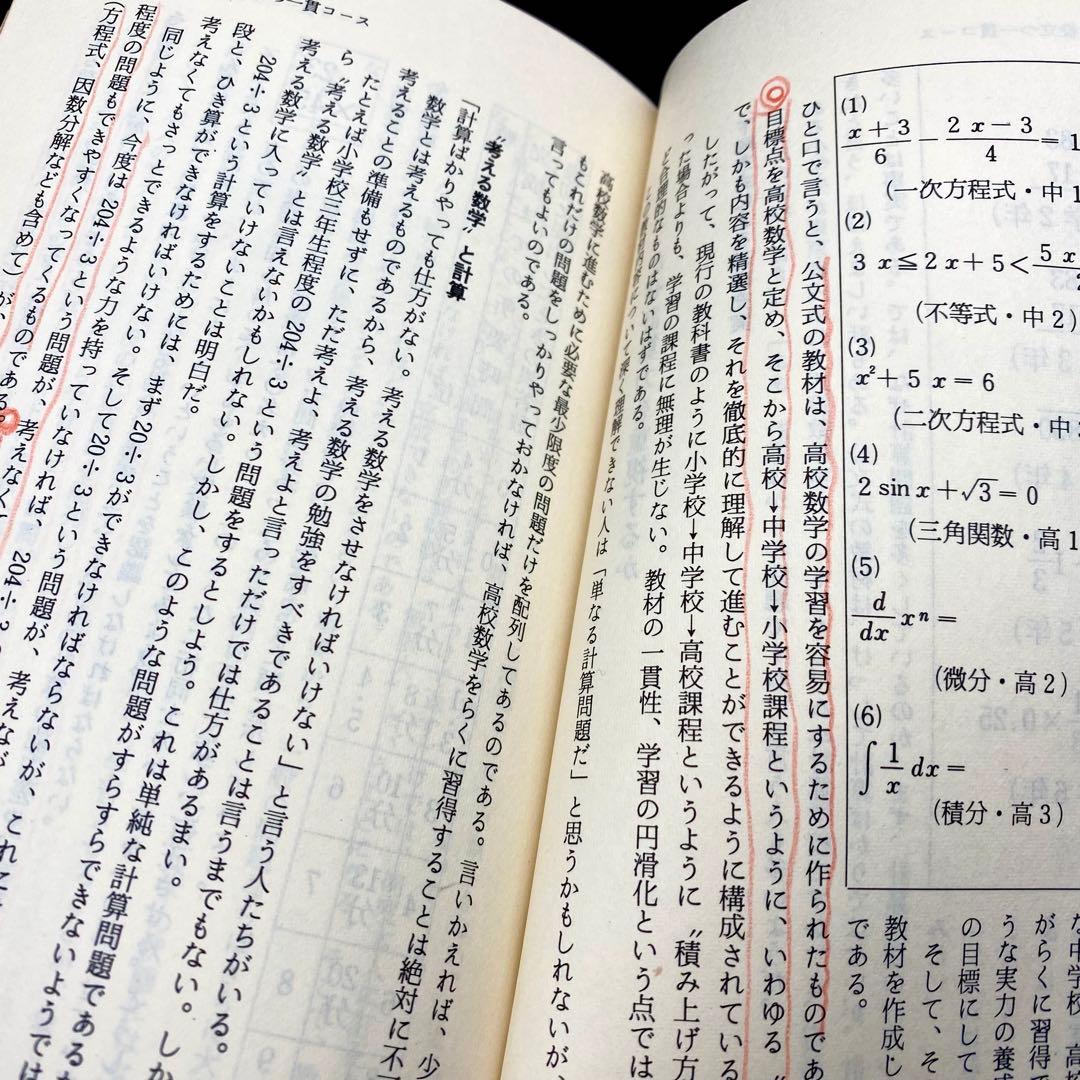 (1)
x+3/6 − 2x−3/4 = 1
(一次方程式・中1
(2)
3x≦2x+5<5x
(不等式・中2)
(3)
x²+5x=6
(二次方程式・中3
(4)
2 sin x+√3=0
(三角関数・高1
(5)
d/dx xⁿ=
(微分・高2)
(6)
∫1/x dx=
(積分・高3)
な中学校、高
がらくに習得で
うな実力の養成
の目標にして
そして、そ
教材を作成し
である。
ひと口で言うと、公文式の教材は、高校数学の学習を容易にするために作られたものであ
目標点を高校数学と定め、そこから高校→中学校→小学校課程というように、いわゆる〝
で、しかも内容を精選し、それを徹底的に理解して進むことができるように構成されている
したがって、現行の教科書のように小学校→中学校→高校課程というように〝積み上げ方
った場合よりも、学習の課程に無理が生じない。教材の一貫性、学習の円滑化という点では
ど合理的なものはないはずである。
この教材内容について深く理解できない人は「単なる計算問題だ」と思うかもしれないが、
つ一貫コース
高校数学に進むために必要な最少限度の問題だけを配列してあるのである。言いかえれば、少
もこれだけの問題をしっかりやっておかなければ、高校数学をらくに習得することは絶対に不
言ってもよいのである。
〝考える数学〟と計算
「計算ばかりやっても仕方がない。考える数学をさせなければいけない」と言う人たちがいる。
数学とは考えるものであるから、考える数学の勉強をすべきであることは言うまでもない。しか
考えることの準備もせずに、ただ考えよ、考えよと言っただけでは仕方があるまい。
たとえば小学校三年生程度の204÷3という問題をするとしよう。これは単純な計算問題であるか
ら〝考える数学〟とは言えないかもしれない。しかし、このような問題がすらすらできないようでは
考える数学に入っていけないことは明白だ。
204÷3という計算をするためには、まず20÷3ができなければならないが、これに
段と、ひき算ができなければいけない。そして20÷3という問題が、考えなが
考えなくてもさっとできるような力を持っていなければ、204÷3
同じように、今度は204÷3という問題が、考えなくて
程度の問題もできやすくなってくるものである。
(方程式、因数分解なども含めて)が、